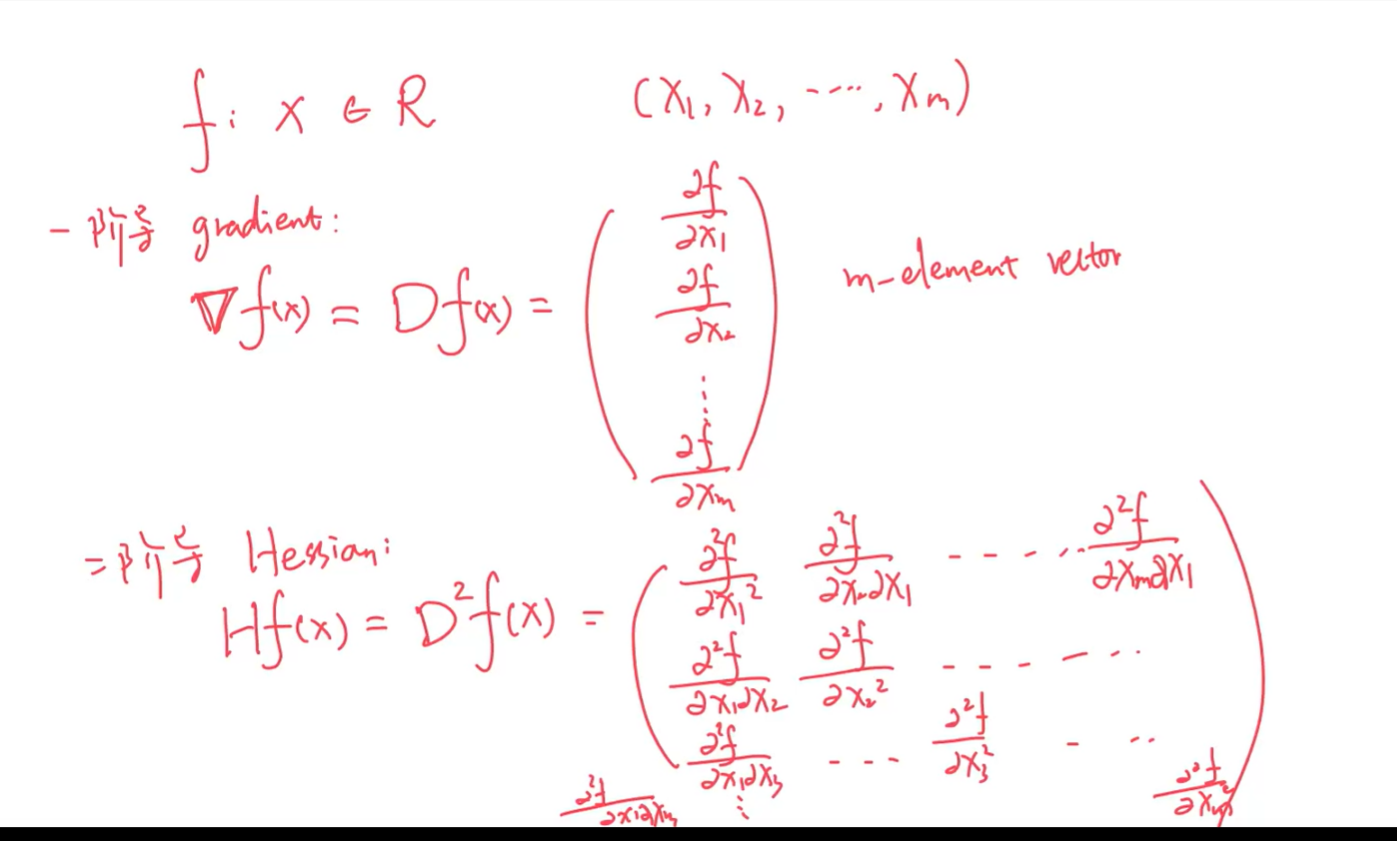 f: x ∈ R (x₁, x₂, ....., xₘ)
一阶导 gradient:
∇f(x) = Df(x) = ( ∂f/∂x₁ ∂f/∂x₂ ⋮ ∂f/∂xₘ ) m-element vector
二阶导 Hessian:
Hf(x) = D²f(x) = ( ∂²f/∂x₁² ∂²f/∂x₂∂x₁ ----.. ∂²f/∂xₘ∂x₁
∂²f/∂x₁∂x₂ ∂²f/∂x₂² ---- ..
∂²f/∂x₁∂x₃ --- ∂²f/∂x₃² - ..
∂²f/∂x₁∂xₘ ⋮ ∂²f/∂xₘ² )